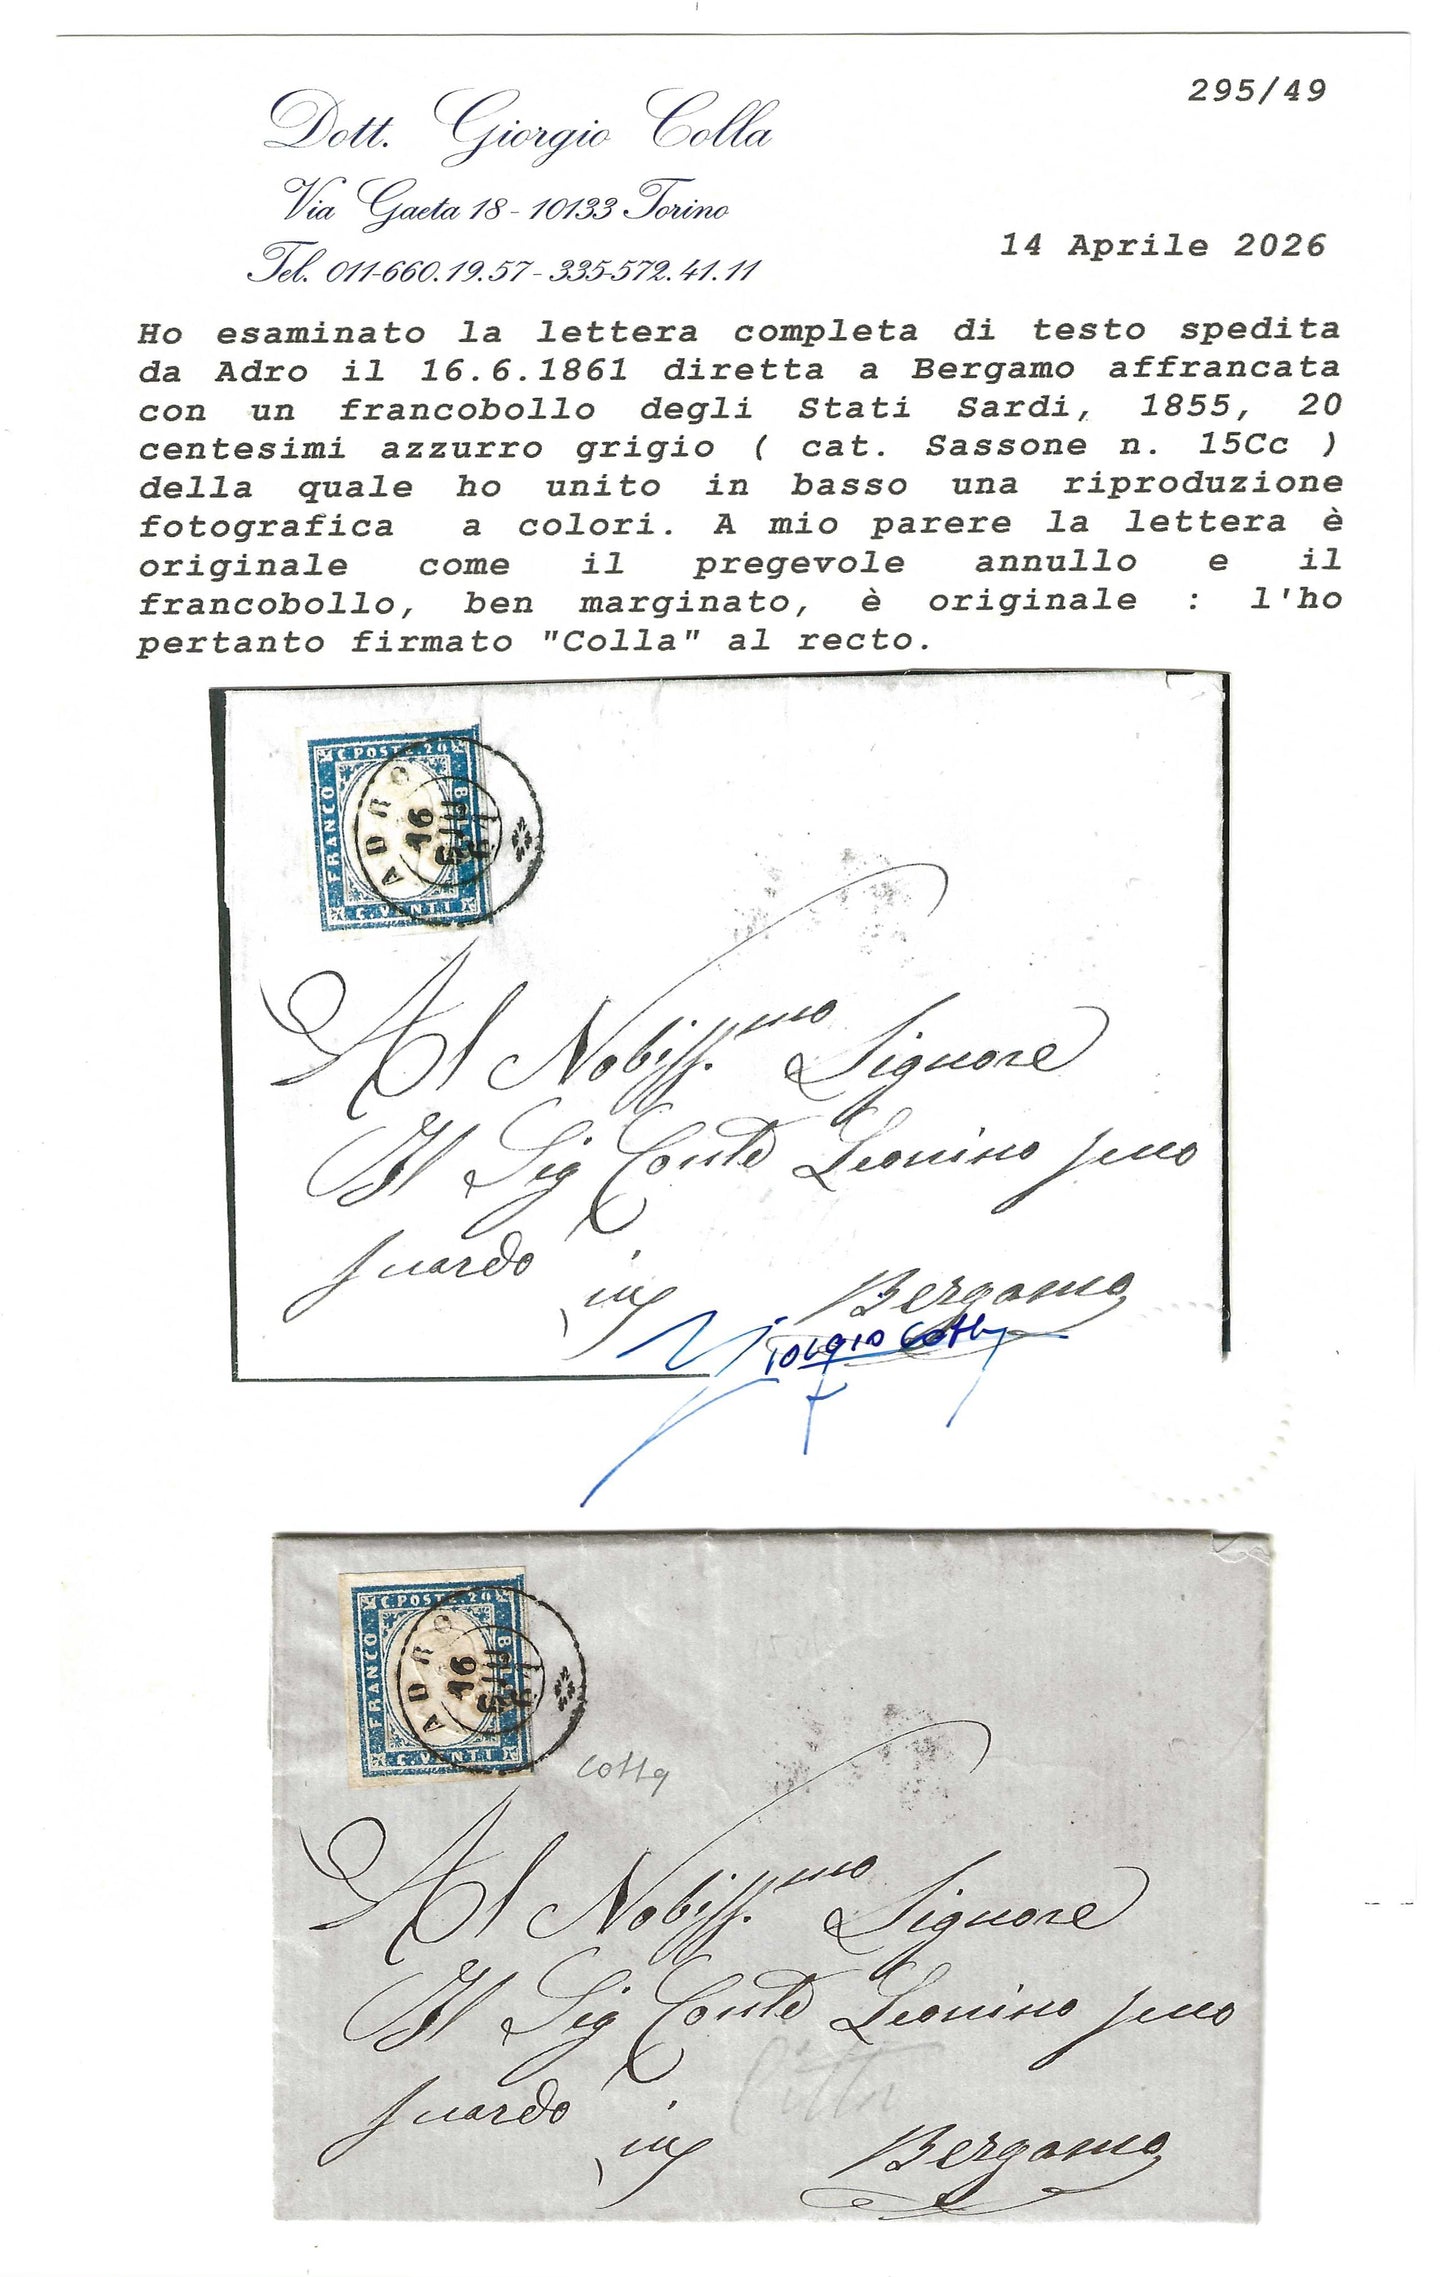 295/49
Dott. Giorgio Colla
Via Gaeta 18 - 10133 Torino
Tel. 011-660.19.57 - 335-572.41.11
14 Aprile 2026
Ho esaminato la lettera completa di testo spedita
da Adro il 16.6.1861 diretta a Bergamo affrancata
con un francobollo degli Stati Sardi, 1855, 20
centesimi azzurro grigio ( cat. Sassone n. 15Cc )
della quale ho unito in basso una riproduzione
fotografica a colori. A mio parere la lettera è
originale come il pregevole annullo e il
francobollo, ben marginato, è originale : l'ho
pertanto firmato "Colla" al recto.
C. POSTE. 20
FRANCO
BOLLO
C. VENTI
ADRO
16
GIU
61
Al Nobiss.mo Signore
Il Sig Conte Leonino Secco
Suardo
in Bergamo
Giorgio Colla
C. POSTE. 20
FRANCO
BOLLO
C. VENTI
ADRO
16
GIU
61
Colla
Al Nobiss.mo Signore
Il Sig Conte Leonino Secco
Suardo
in Bergamo